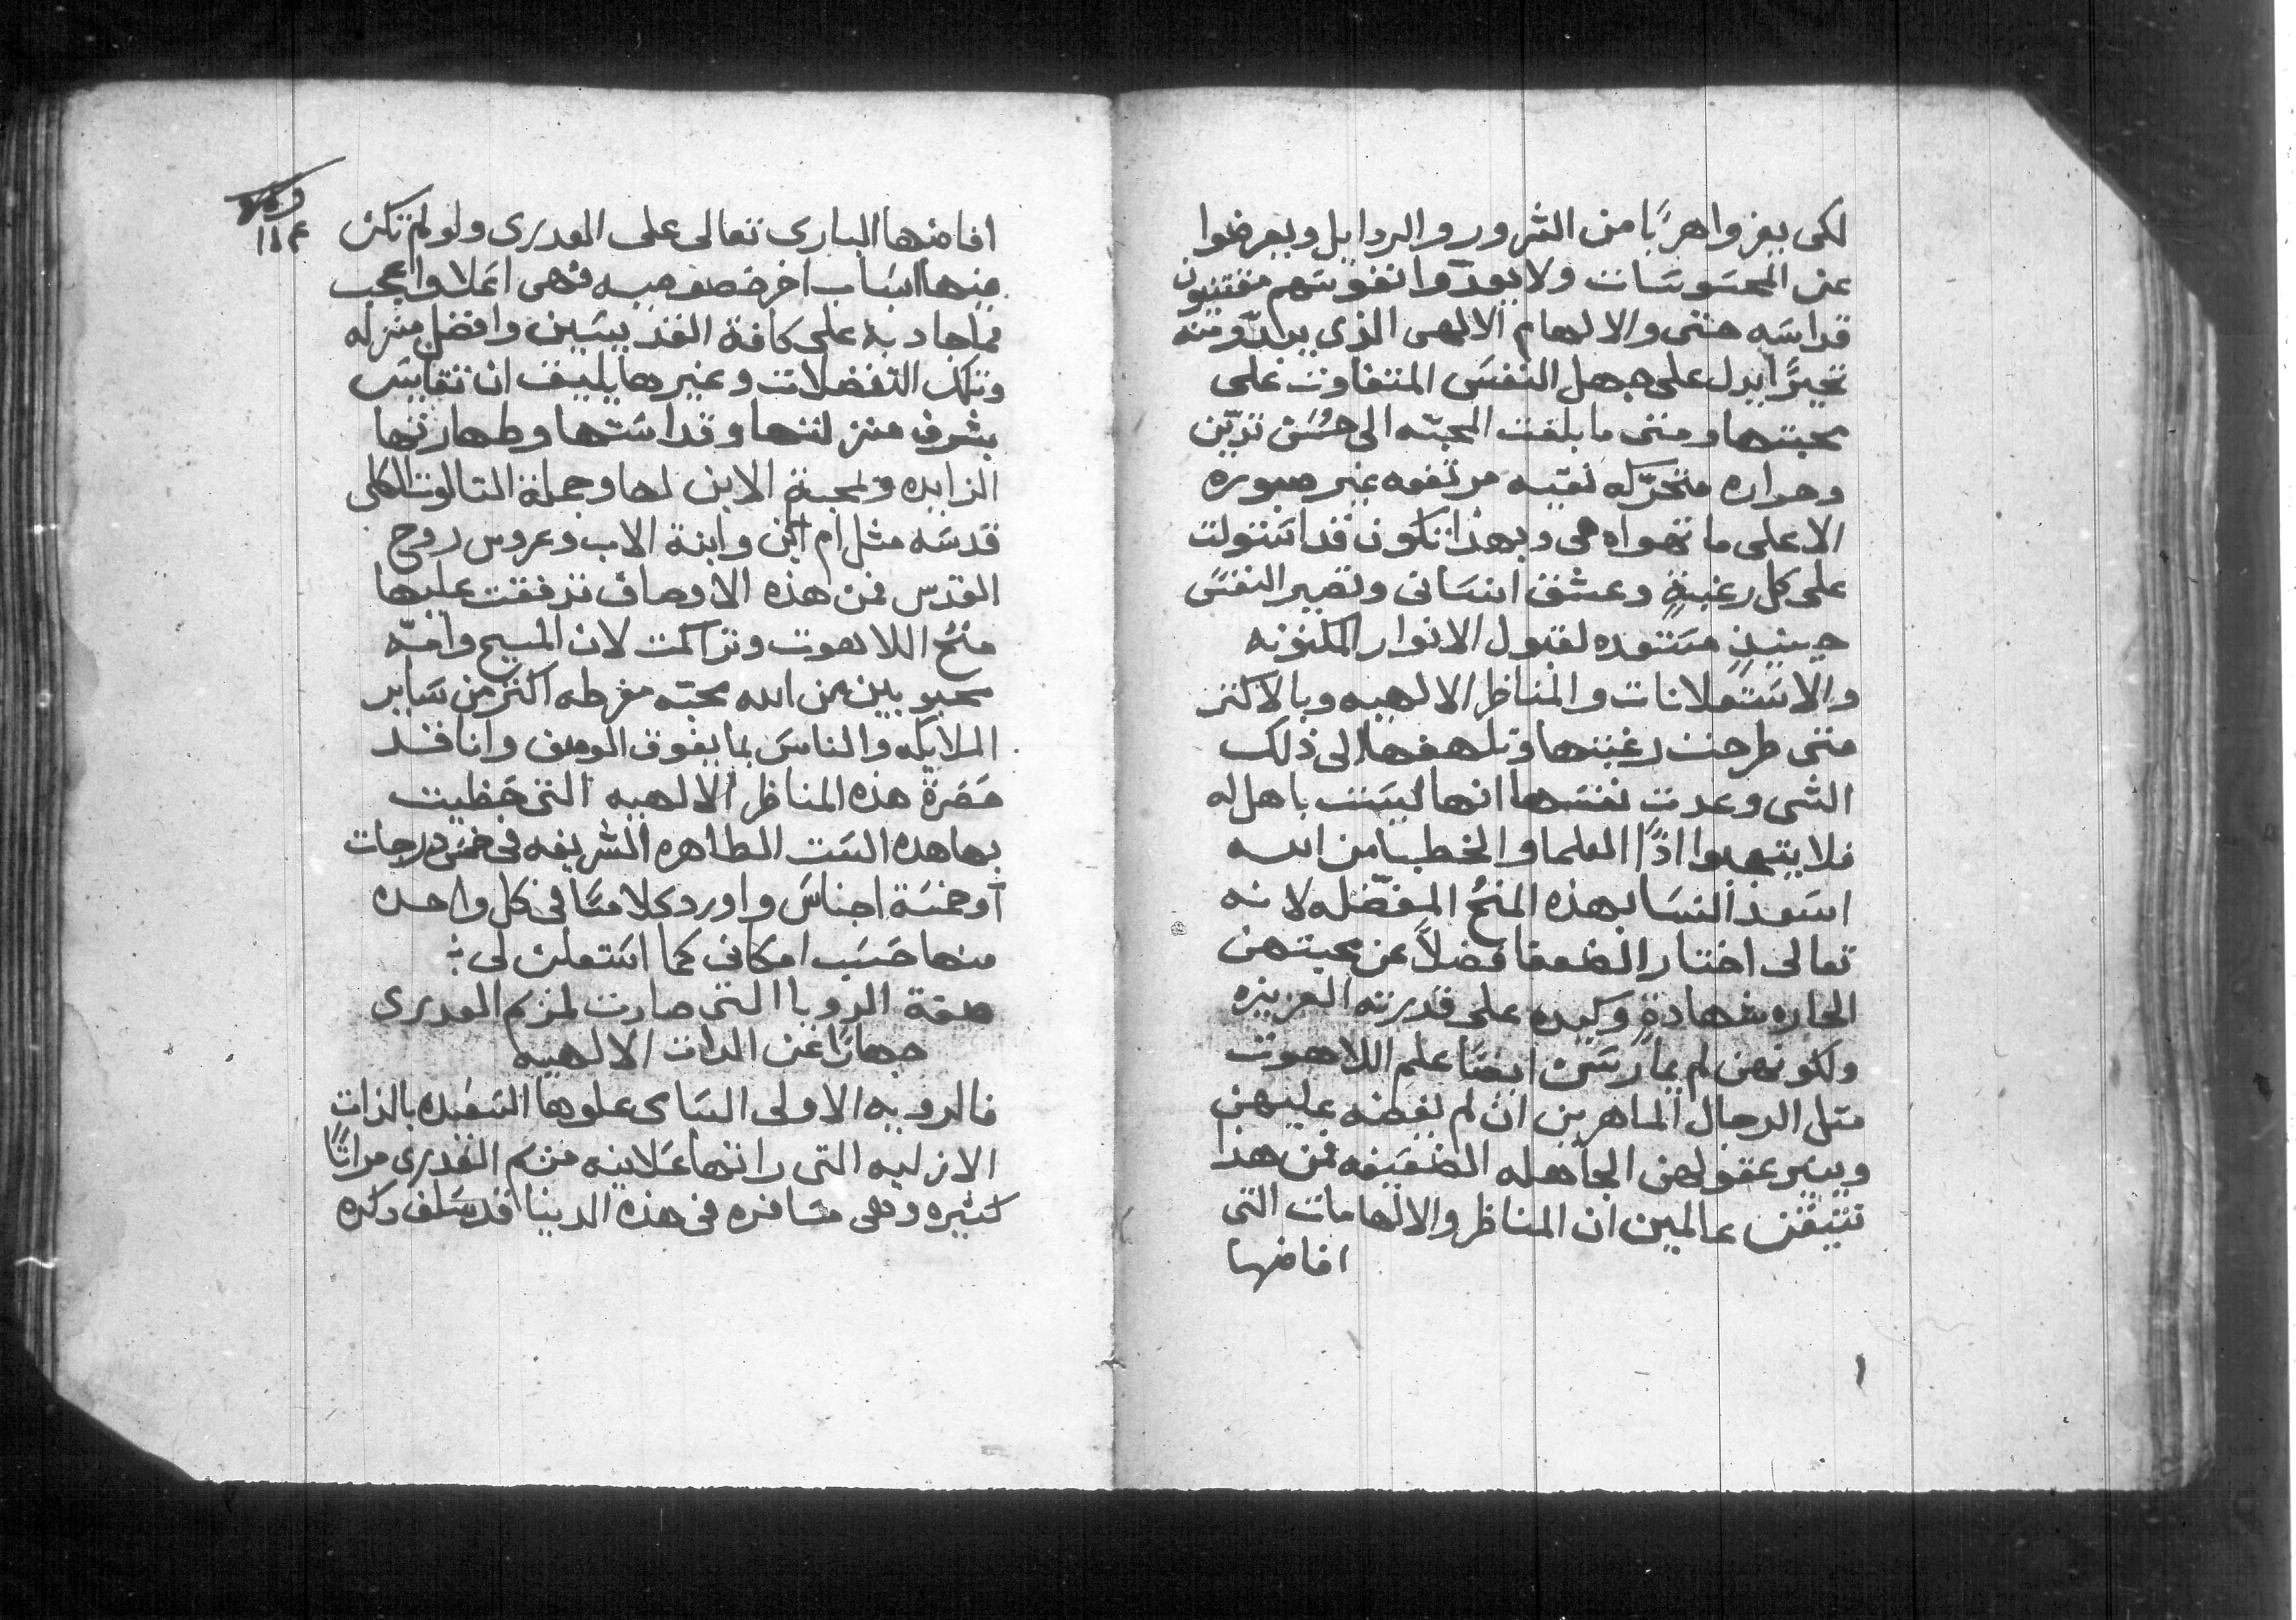 لكى يفروا هربًا من الشرور والردايل ويعرضوا
عن المحسوسات ولا يعودوا نفوسهم مفتنيون
قداسه حتى والالهام الالهى الذى يرادّ ومنه
تحيزًا يدل على جهل النفس المتفاوت على
محبتها ومتى ما بلغت المحبّه الى حُسن تزيّن
وحراره متحرّكه نقيّه مرتفعه غير صبوره
الا على ما تهواه هى وبهذا تكون قد استولت
على كل رغبةٍ وعشق انسانى وتصير النفس
حينيذٍ مستعده لقبول الانوار المكنونه
والاستعلانات والمناظر الالهيه وبالاكثر
متى طرحت رغبتها وتلهفها الى ذلك
الشى وعدت نفسها انها ليست باهل له
فلا يتعجبوا اذًا العلما والخطبا من الله
اسعد النسا بهذه المنحُ المفضّله لانه
تعالى اختار الضعفا فضلاً عن محبتهن
الحاره شهادةٍ وكيده على قدرته العزيزه
ولكونهن لم يمارسن ايضًا علم اللاهوت
مثل الرجال الماهرين ان لم يفضه عليهن
وينير عقولهن الجاهله الضعيفه فمن هذا
نتيقن عالمين ان المناظر والالهامات التى
افاضها
افاضها البارى تعالى على العدرى ولو لم تكن
منها اسباب اخر خصوصيه فهى اعلا واعجب
مما جاد به على كافة القديسين وافضل منزله
وتلك التفضلات وغيرها يليق ان تقايس
بشرف منزلتها وقداستها وطهارتها
الزايده ولمحبة الابن لها وجملة التالوت الكلى
قدسه مثل ام ابن وابنة الاب وعروس روح
القدس فمن هذه الاوصاف تدفقت عليها
منحُ اللاهوت وتراكمت لان المسيح وامّه
محبوبين من الله محبّه مفرطه اكثر من ساير
الملايكه والناس بما يفوق الوصف وانا قد
حَصَرة هذه المناظر الالهيه التى حظيت
بها هده الست الطاهره الشريفه فى خمس درجات
أو خمسة اجناس واورد كلامنا فى كل واحده
منها حسب امكانى كما استعلن لى
صفة الرويا التى صارت لمريم العدرى
جهارًا عن الدات الالهيه
فالرويه الاولى السامى علوها السعيده بالذات
الازليه التى راتها علانيه مريم العدرى مرارًا
كثيره وهى مسافره فى هذه الدينا قد سلف ذكره